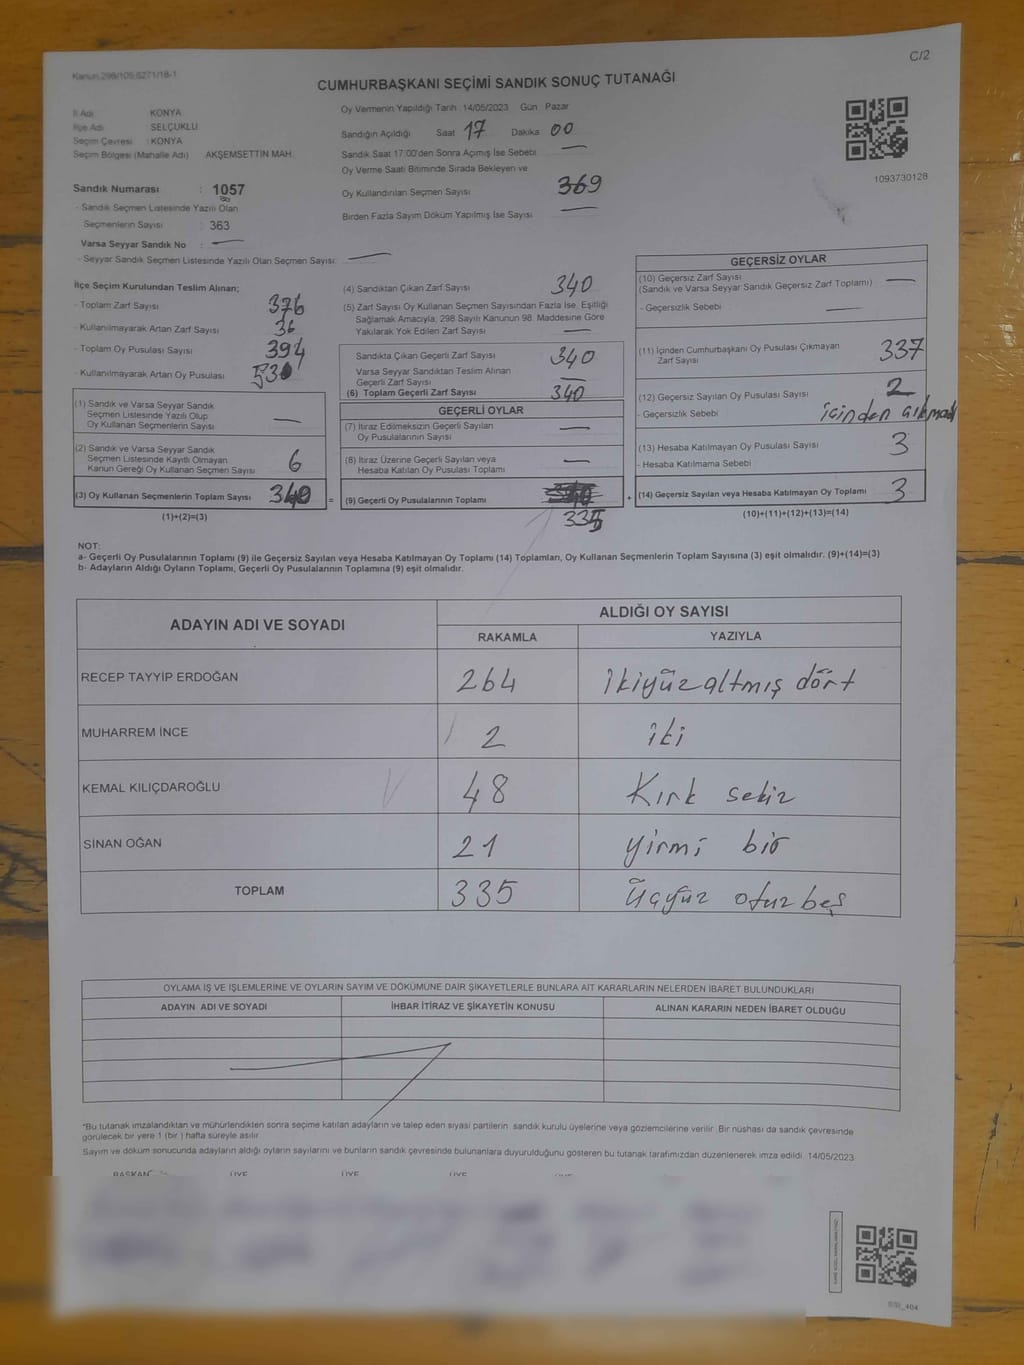 C/2
Kanun,298/105,6271/18-1
CUMHURBAŞKANI SEÇİMİ SANDIK SONUÇ TUTANAĞI
İl Adı KONYA
İlçe Adı SELÇUKLU
Seçim Çevresi : KONYA
Seçim Bölgesi (Mahalle Adı) AKŞEMSETTİN MAH.
Sandık Numarası : 1057
- Sandık Seçmen Listesinde Yazılı Olan
Seçmenlerin Sayısı : 363
Varsa Seyyar Sandık No :
- Seyyar Sandık Seçmen Listesinde Yazılı Olan Seçmen Sayısı:
Oy Vermenin Yapıldığı Tarih : 14/05/2023 Gün : Pazar
Sandığın Açıldığı Saat 17 Dakika 00
Sandık Saat 17:00'den Sonra Açımış İse Sebebi
Oy Verme Saati Bitiminde Sırada Bekleyen ve
Oy Kullandırılan Seçmen Sayısı 369
Birden Fazla Sayım Döküm Yapılmış İse Sayısı
1093730128
İlçe Seçim Kurulundan Teslim Alınan;
- Toplam Zarf Sayısı 376
- Kullanılmayarak Artan Zarf Sayısı 36
- Toplam Oy Pusulası Sayısı 394
- Kullanılmayarak Artan Oy Pusulası
(1) Sandık ve Varsa Seyyar Sandık
Seçmen Listesinde Yazılı Olup
Oy Kullanan Seçmenlerin Sayısı
(2) Sandık ve Varsa Seyyar Sandık
Seçmen Listesinde Kayıtlı Olmayan
Kanun Gereği Oy Kullanan Seçmen Sayısı 6
(3) Oy Kullanan Seçmenlerin Toplam Sayısı 340 =
(1)+(2)=(3)
(4) Sandıktan Çıkan Zarf Sayısı 340
(5) Zarf Sayısı Oy Kullanan Seçmen Sayısından Fazla İse, Eşitliği
Sağlamak Amacıyla, 298 Sayılı Kanunun 98. Maddesine Göre
Yakılarak Yok Edilen Zarf Sayısı
Sandıkta Çıkan Geçerli Zarf Sayısı 340
Varsa Seyyar Sandıktan Teslim Alınan
Geçerli Zarf Sayısı
(6) Toplam Geçerli Zarf Sayısı 340
GEÇERLİ OYLAR
(7) İtiraz Edilmeksizin Geçerli Sayılan
Oy Pusulalarının Sayısı
(8) İtiraz Üzerine Geçerli Sayılan veya
Hesaba Katılan Oy Pusulası Toplamı
(9) Geçerli Oy Pusulalarının Toplamı +
335
GEÇERSİZ OYLAR
(10) Geçersiz Zarf Sayısı
(Sandık ve Varsa Seyyar Sandık Geçersiz Zarf Toplamı)
- Geçersizlik Sebebi
(11) İçinden Cumhurbaşkanı Oy Pusulası Çıkmayan
Zarf Sayısı 337
(12) Geçersiz Sayılan Oy Pusulası Sayısı 2
- Geçersizlik Sebebi içinden çıkmadı
(13) Hesaba Katılmayan Oy Pusulası Sayısı 3
- Hesaba Katılmama Sebebi
(14) Geçersiz Sayılan veya Hesaba Katılmayan Oy Toplamı 3
(10)+(11)+(12)+(13)=(14)
NOT:
a- Geçerli Oy Pusulalarının Toplamı (9) ile Geçersiz Sayılan veya Hesaba Katılmayan Oy Toplamı (14) Toplamları, Oy Kullanan Seçmenlerin Toplam Sayısına (3) eşit olmalıdır. (9)+(14)=(3)
b- Adayların Aldığı Oyların Toplamı, Geçerli Oy Pusulalarının Toplamına (9) eşit olmalıdır.
ADAYIN ADI VE SOYADI ALDIĞI OY SAYISI
RAKAMLA YAZIYLA
RECEP TAYYİP ERDOĞAN 264 ikiyüzaltmış dört
MUHARREM İNCE 2 iki
KEMAL KILIÇDAROĞLU 48 Kırk sekiz
SİNAN OĞAN 21 yirmi bir
TOPLAM 335 üçyüz otuz beş
OYLAMA İŞ VE İŞLEMLERİNE VE OYLARIN SAYIM VE DÖKÜMÜNE DAİR ŞİKAYETLERLE BUNLARA AİT KARARLARIN NELERDEN İBARET BULUNDUKLARI
ADAYIN ADI VE SOYADI İHBAR İTİRAZ VE ŞİKAYETİN KONUSU ALINAN KARARIN NEDEN İBARET OLDUĞU
*Bu tutanak imzalandıktan ve mühürlendikten sonra seçime katılan adayların ve talep eden siyasi partilerin sandık kurulu üyelerine veya gözlemcilerine verilir. Bir nüshası da sandık çevresinde
görülecek bir yere 1 (bir ) hafta süreyle asılır.
Sayım ve döküm sonucunda adayların aldığı oyların sayılarını ve bunların sandık çevresinde bulunanlara duyurulduğunu gösteren bu tutanak tarafımızdan düzenlenerek imza edildi. 14/05/2023
BAŞKAN ÜYE ÜYE ÜYE